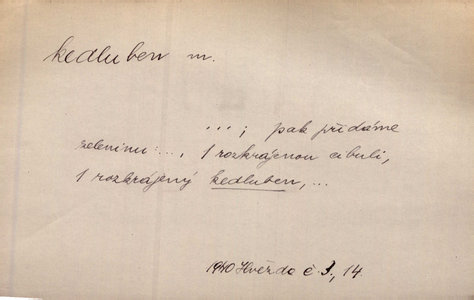 kedluben m.
...; pak přidáme
zeleninu: ..., 1 rozkrájenou cibuli,
1 rozkrájený kedluben, ...
1940 Hvězda č. 3., 14.